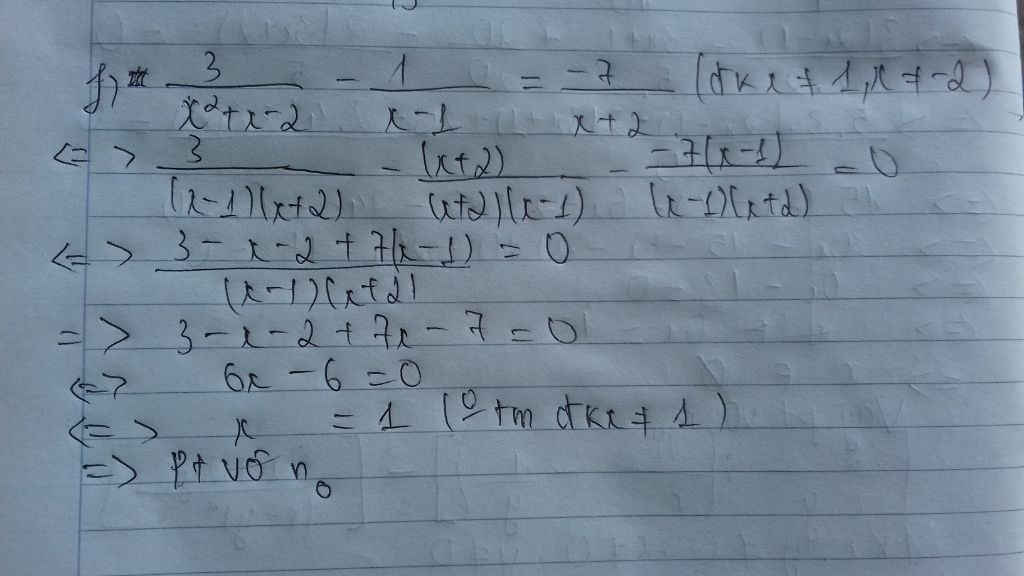 f) 3/(x²+x-2) - 1/(x-1) = -7/(x+2) (đk x ≠ 1, x ≠ -2)
<=> 3/((x-1)(x+2)) - (x+2)/((x+2)(x-1)) - -7(x-1)/((x-1)(x+2)) = 0
<=> (3-x-2+7(x-1))/((x-1)(x+2)) = 0
=> 3-x-2+7x-7=0
<=> 6x-6=0
<=> x = 1 (0 tm đk x ≠ 1)
=> pt vô n0